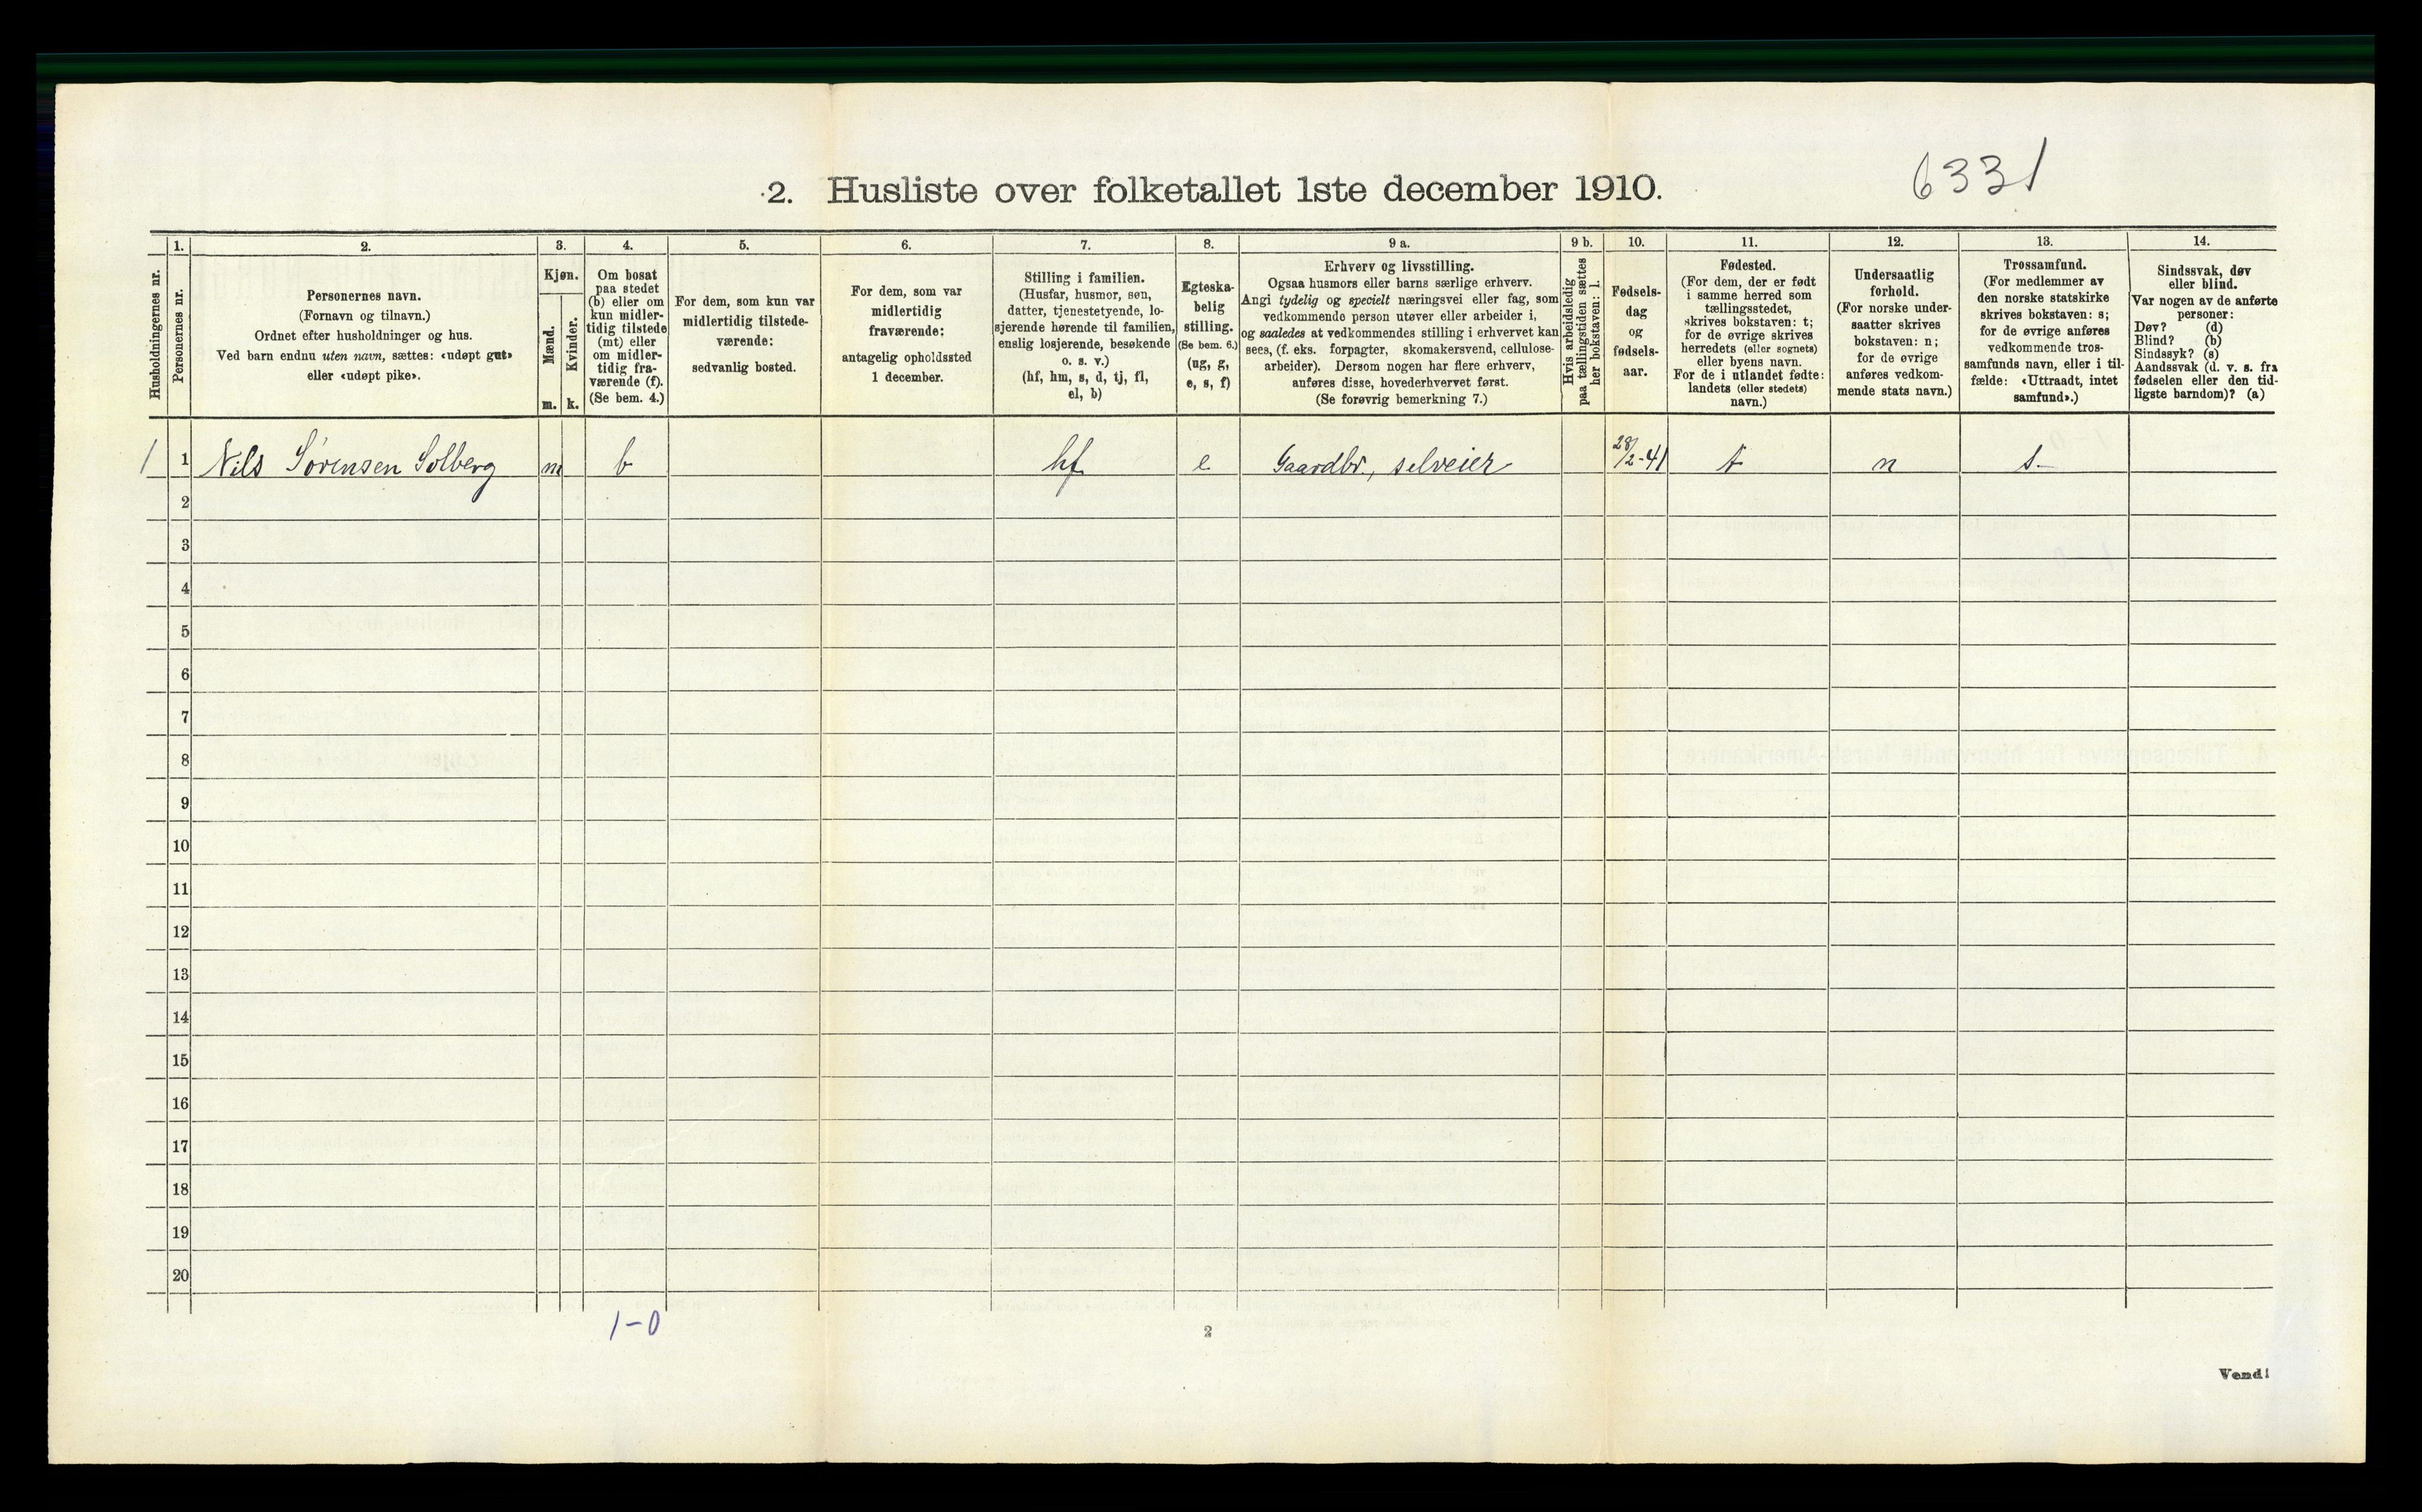 6331
2. Husliste over folketallet 1ste december 1910.
Husholdningernes nr.
1.
Personernes nr.
2.
Personernes navn.
(Fornavn og tilnavn.)
Ordnet efter husholdninger og hus.
Ved barn endnu uten navn, sættes: «udøpt gut»
eller «udøpt pike».
3.
Kjøn.
Mænd.
m.
Kvinder.
k.
4.
Om bosat
paa stedet
(b) eller om
kun midler-
tidig tilstede
(mt) eller
om midler-
tidig fra-
værende (f).
(Se bem. 4.)
5.
For dem, som kun var
midlertidig tilstede-
værende:
sedvanlig bosted.
6.
For dem, som var
midlertidig
fraværende:
antagelig opholdssted
1 december.
7.
Stilling i familien.
(Husfar, husmor, søn,
datter, tjenestetyende, lo-
sjerende hørende til familien,
enslig losjerende, besøkende
o. s. v.)
(hf, hm, s, d, tj, fl,
el, b)
8.
Egteska-
belig
stilling.
(Se bem. 6.)
(ug, g,
e, s, f)
9 a.
Erhverv og livsstilling.
Ogsaa husmors eller barns særlige erhverv.
Angi tydelig og specielt næringsvei eller fag, som
vedkommende person utøver eller arbeider i,
og saaledes at vedkommendes stilling i erhvervet kan
sees, (f. eks. forpagter, skomakersvend, cellulose-
arbeider). Dersom nogen har flere erhverv,
anføres disse, hovederhvervet først.
(Se forøvrig bemerkning 7.)
9 b.
Hvis arbeidsledig
paa tællingstiden sættes
her bokstaven: l.
10.
Fødsels-
dag
og
fødsels-
aar.
11.
Fødested.
(For dem, der er født
i samme herred som
tællingsstedet,
skrives bokstaven: t;
for de øvrige skrives
herredets (eller sognets)
eller byens navn.
For de i utlandet fødte:
landets (eller stedets)
navn.)
12.
Undersaatlig
forhold.
(For norske under-
saatter skrives
bokstaven: n;
for de øvrige
anføres vedkom-
mende stats navn.)
13.
Trossamfund.
(For medlemmer av
den norske statskirke
skrives bokstaven: s;
for de øvrige anføres
vedkommende tros-
samfunds navn, eller i til-
fælde: «Uttraadt, intet
samfund».)
14.
Sindssvak, døv
eller blind.
Var nogen av de anførte
personer:
Døv? (d)
Blind? (b)
Sindssyk? (s)
Aandssvak (d. v. s. fra
fødselen eller den tid-
ligste barndom)? (a)
1 1 Nils Sørensen Solberg m b hf e Gaardbr., selveier 28/2-41 t n s
2
3
4
5
6
7
8
9
10
11
12
13
14
15
16
17
18
19
20
1-0
2
Vend!